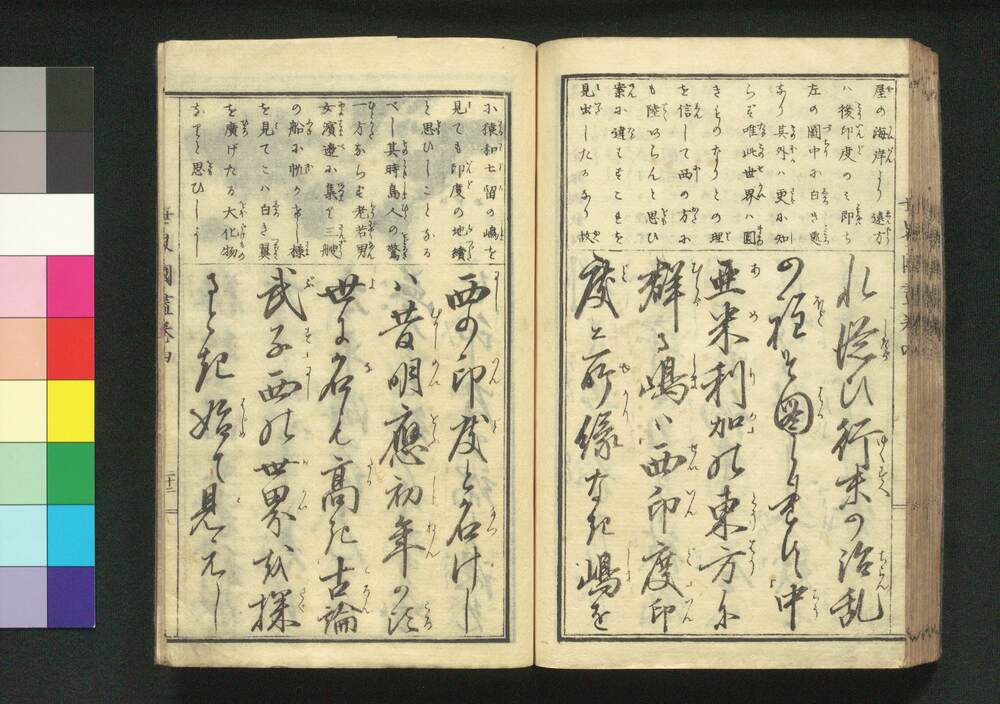 屋の海岸より遠方
ハ後印度のミ即ち
左の圖中に白き處
なり其外ハ更に知
らず唯此世界ハ圓
きものなりとの理
を信して西の方に
も陸あらんと思ひ
案に違ずこれを
見出したるなり故
れ從ひ行末の治乱
の程ぞ圖られず中
亜米利加の東方に
群る嶋ハ西印度印
度と所縁なき嶋を
に猿和士留の嶋を
見ても印度の地續
と思ひしことなる
べし其時島人の驚
一方ならず老若男
女濱邊に集て三艘
の船に帆かけし様
を見てこハ白き翼
を廣げたる大化物
なりと思ひしよし
西の印度と名けし
ハ昔明應初年の頃
世に名も高き古論
武子西の世界を探
るとき始て見出し
世界國盡卷四
二十二